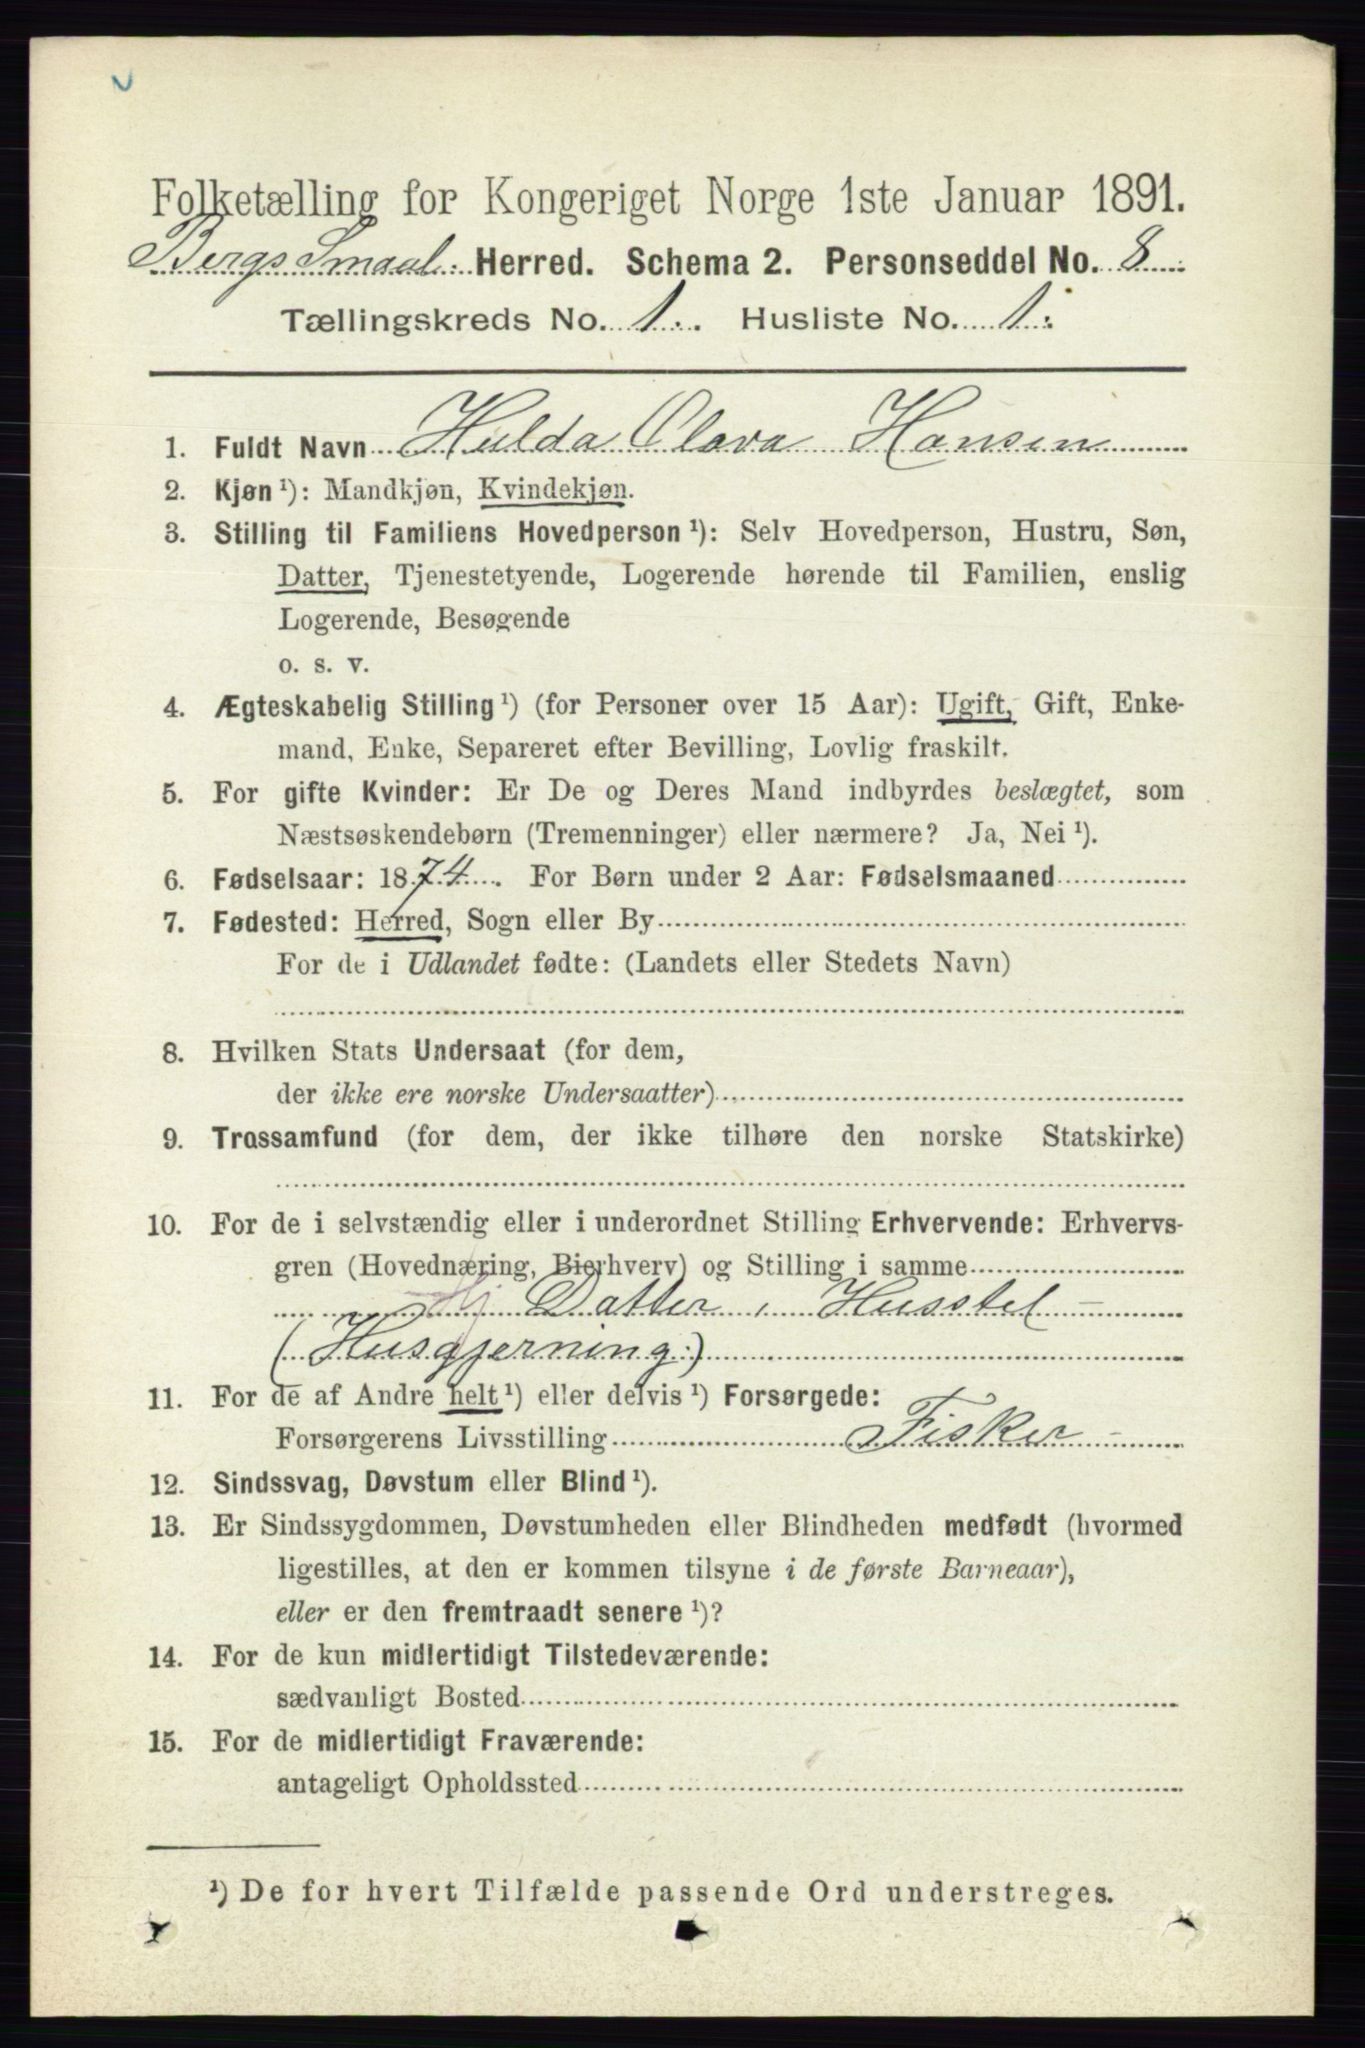 Folketælling for Kongeriget Norge 1ste Januar 1891.
Bergs Smaal. Herred. Schema 2. Personseddel No. 8
Tællingskreds No. 1. Husliste No. 1.
1. Fuldt Navn Hulda Olava Hansen
2. Kjøn ¹): Mandkjøn, Kvindekjøn.
3. Stilling til Familiens Hovedperson ¹): Selv Hovedperson, Hustru, Søn,
Datter, Tjenestetyende, Logerende hørende til Familien, enslig
Logerende, Besøgende
o. s. v.
4. Ægteskabelig Stilling ¹) (for Personer over 15 Aar): Ugift, Gift, Enke-
mand, Enke, Separeret efter Bevilling, Lovlig fraskilt.
5. For gifte Kvinder: Er De og Deres Mand indbyrdes beslægtet, som
Næstsøskendebørn (Tremenninger) eller nærmere? Ja, Nei ¹).
6. Fødselsaar: 1874. For Børn under 2 Aar: Fødselsmaaned
7. Fødested: Herred, Sogn eller By
For de i Udlandet fødte: (Landets eller Stedets Navn)
8. Hvilken Stats Undersaat (for dem,
der ikke ere norske Undersaatter)
9. Trossamfund (for dem, der ikke tilhøre den norske Statskirke)
10. For de i selvstændig eller i underordnet Stilling Erhvervende: Erhvervs-
gren (Hovednæring, Bierhverv) og Stilling i samme
Hj Datter, Husstel –
(Husgjerning)
11. For de af Andre helt ¹) eller delvis ¹) Forsørgede:
Forsørgerens Livsstilling Fisker –
12. Sindssvag, Døvstum eller Blind ¹).
13. Er Sindssygdommen, Døvstumheden eller Blindheden medfødt (hvormed
ligestilles, at den er kommen tilsyne i de første Barneaar),
eller er den fremtraadt senere ¹)?
14. For de kun midlertidigt Tilstedeværende:
sædvanligt Bosted
15. For de midlertidigt Fraværende:
antageligt Opholdssted
¹) De for hvert Tilfælde passende Ord understreges.